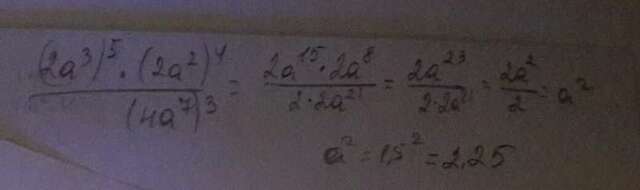 (2a³)⁵·(2a²)⁴/(4a⁷)³ = 2a¹⁵·2a⁸/2·2a²¹ = 2a²³/2·2a²¹ = 2a²/2 = a²
a² = 1,5² = 2,25